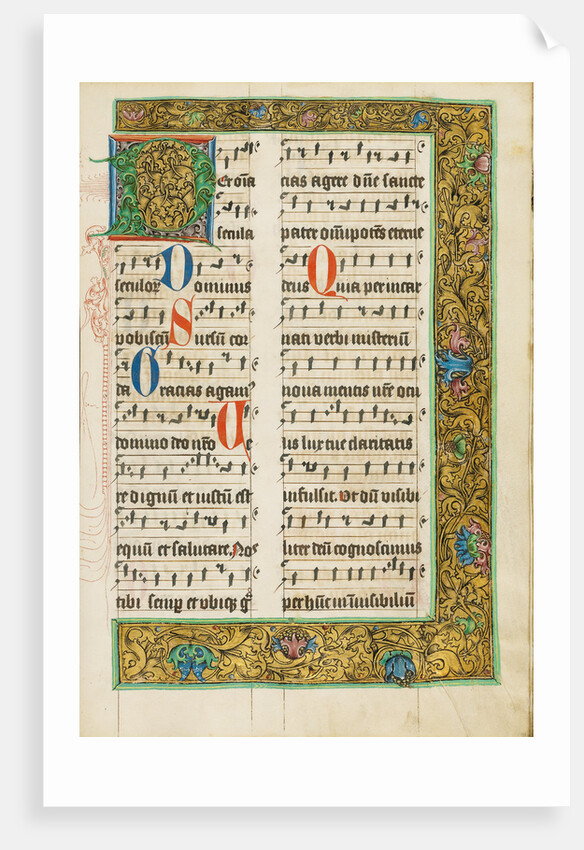 Per om̄a
secula
seculoꝝ Dominus
vobiscū Sursū cor
da Gracias agamꝰ
domino deo nr̄o Ve
re dignum et iustum est
equum et salutare. Nos
tibi semp et vbiqꝫ gͣ
cias agere dn̄e sancte
pater om̄ipotēs eterne
deus Quia per incar
nati verbi misteriū
noua mentis nr̄e ocu
lis lux tue claritatis
infulsit. Vt dū visibi
liter deū cognoscimus
per hūc in īuisibiliū